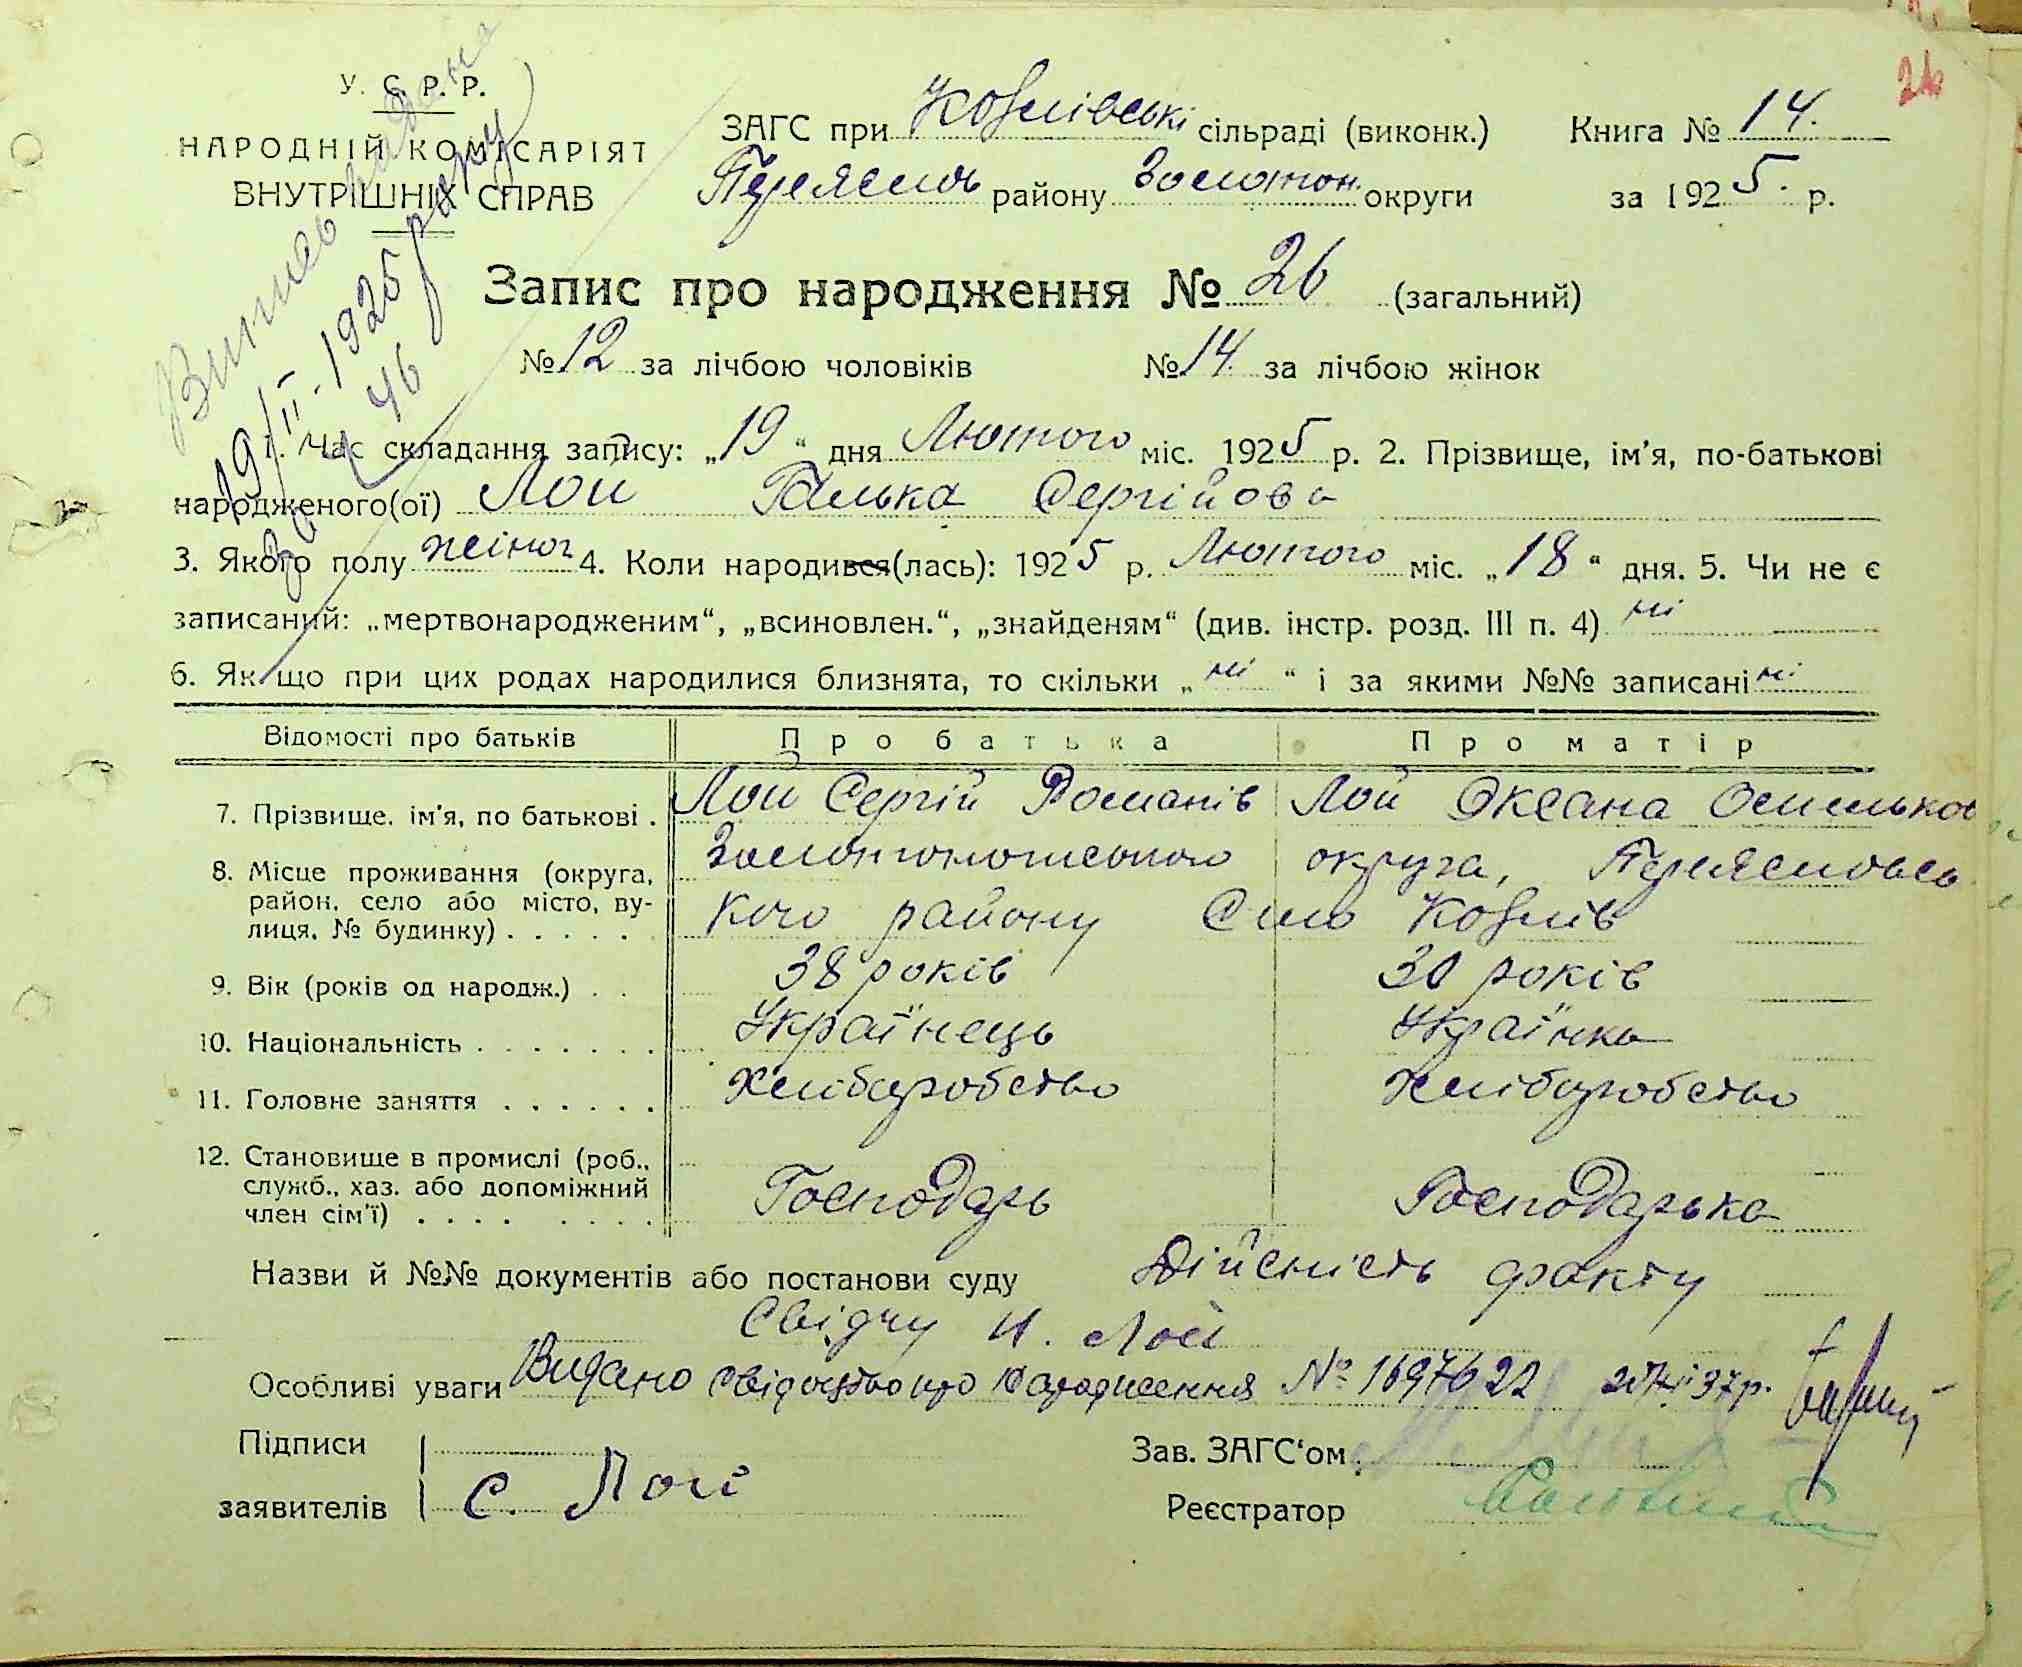 26
У. С. Р. Р.
НАРОДНІЙ КОМІСАРІЯТ
ВНУТРІШНІХ СПРАВ
ЗАГС при Козлівські сільраді (виконк.) Книга № 14.
Переяслов району Золотон. округи за 1925. р.
Витяг видана
19/II-1925 року
за № 46
Запис про народження № 26 (загальний)
№ 12 за лічбою чоловіків № 14. за лічбою жінок
1. Час складання запису: „19“ дня Лютого міс. 1925 р. 2. Прізвище, ім'я, по-батькові
народженого(ої) Лой Галька Сергійова
3. Якого полу жіноч 4. Коли народився(лась): 1925 р. Лютого міс. „18“ дня. 5. Чи не є
записаний: „мертвонародженим“, „всиновлен.“, „знайденям“ (див. інстр. розд. III п. 4) ні
6. Якщо при цих родах народилися близнята, то скільки „ні“ і за якими №№ записані ні
Відомості про батьків Про батька Про матір
7. Прізвище, ім'я, по батькові . Лой Сергій Романів Лой Оксана Омельков
8. Місце проживання (округа, район, село або місто, вулиця, № будинку) . . . . . Золотоношського округа, Переясловсь
кого району Село Козлів
9. Вік (років од народж.) . . 38 років 30 років
10. Національність . . . . . . . Українець Українка
11. Головне заняття . . . . . . Хліборобство Хліборобство
12. Становище в промислі (роб., служб., хаз. або допоміжний член сім'ї) . . . . . . . . Господарь Господарька
Назви й №№ документів або постанови суду Дійсність факту
Свідчу И. Лой
Особливі уваги Видано свідоцтво про народження № 1697622 37р.
Підписи
заявителів С. Лой
Зав. ЗАГС'ом
Реєстратор